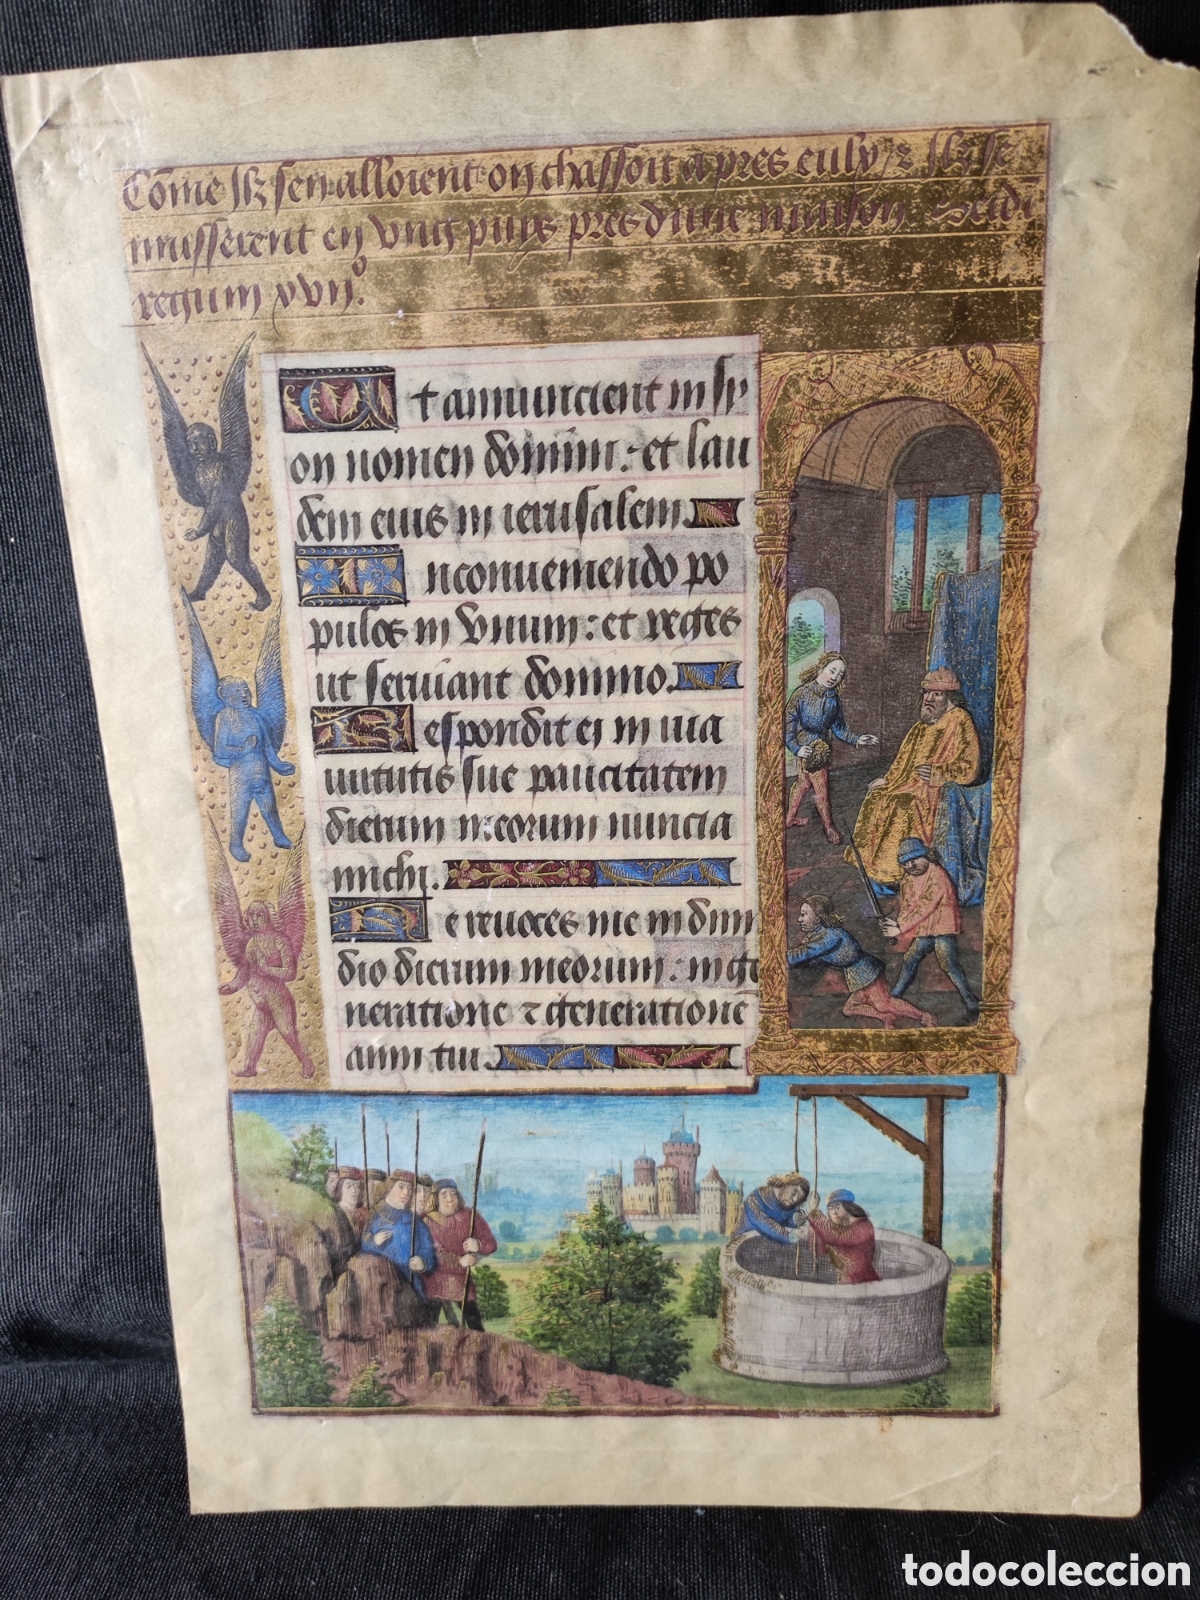 Cõme Ilz sen alloient on chassoit apres eulx / z Ilz se
musserent en vng puys pres dune maison. Secũdi
regum xvijº.
Et annuncient in sy
on nomen domini: et lau
dem eius in ierusalem.
In conueniendo po
pulos in vnum: et reges
ut seruiant domino.
Respondit ei in uia
uirtutis sue paucitatem
dierum meorum nuncia
michi.
Ne reuoces me in dimi
dio dierum meorum: in ge
neratione z generationẽ
anni tui.
todocoleccion